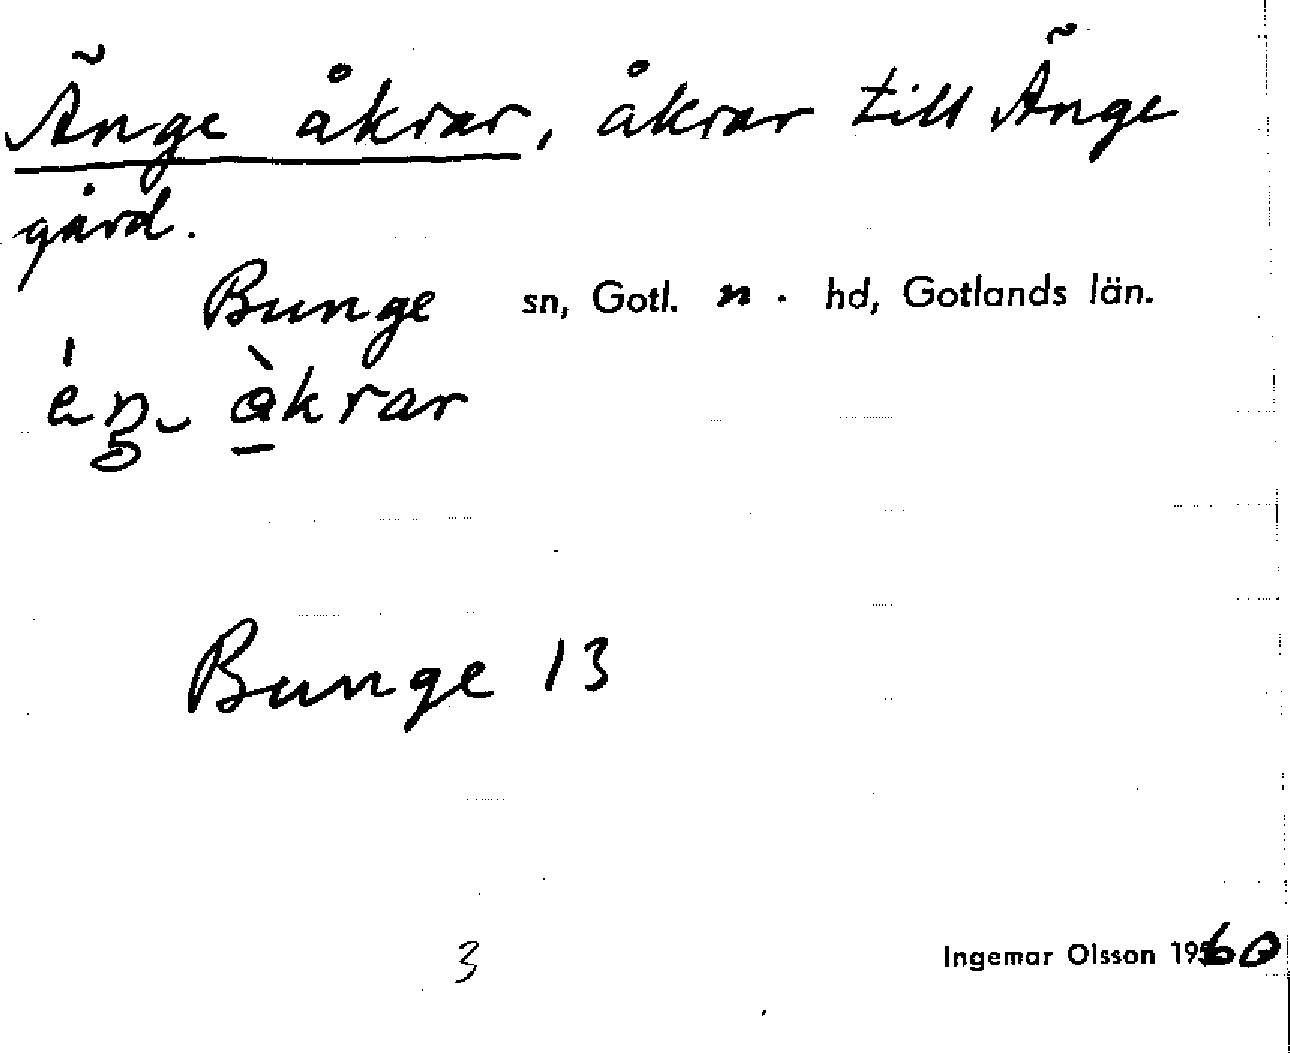 Änge åkrar, åkrar till Änge
gård.
Bunge sn, Gotl. n. hd, Gotlands län.
àkrar
Bunge 13
3
Ingemar Olsson 1960